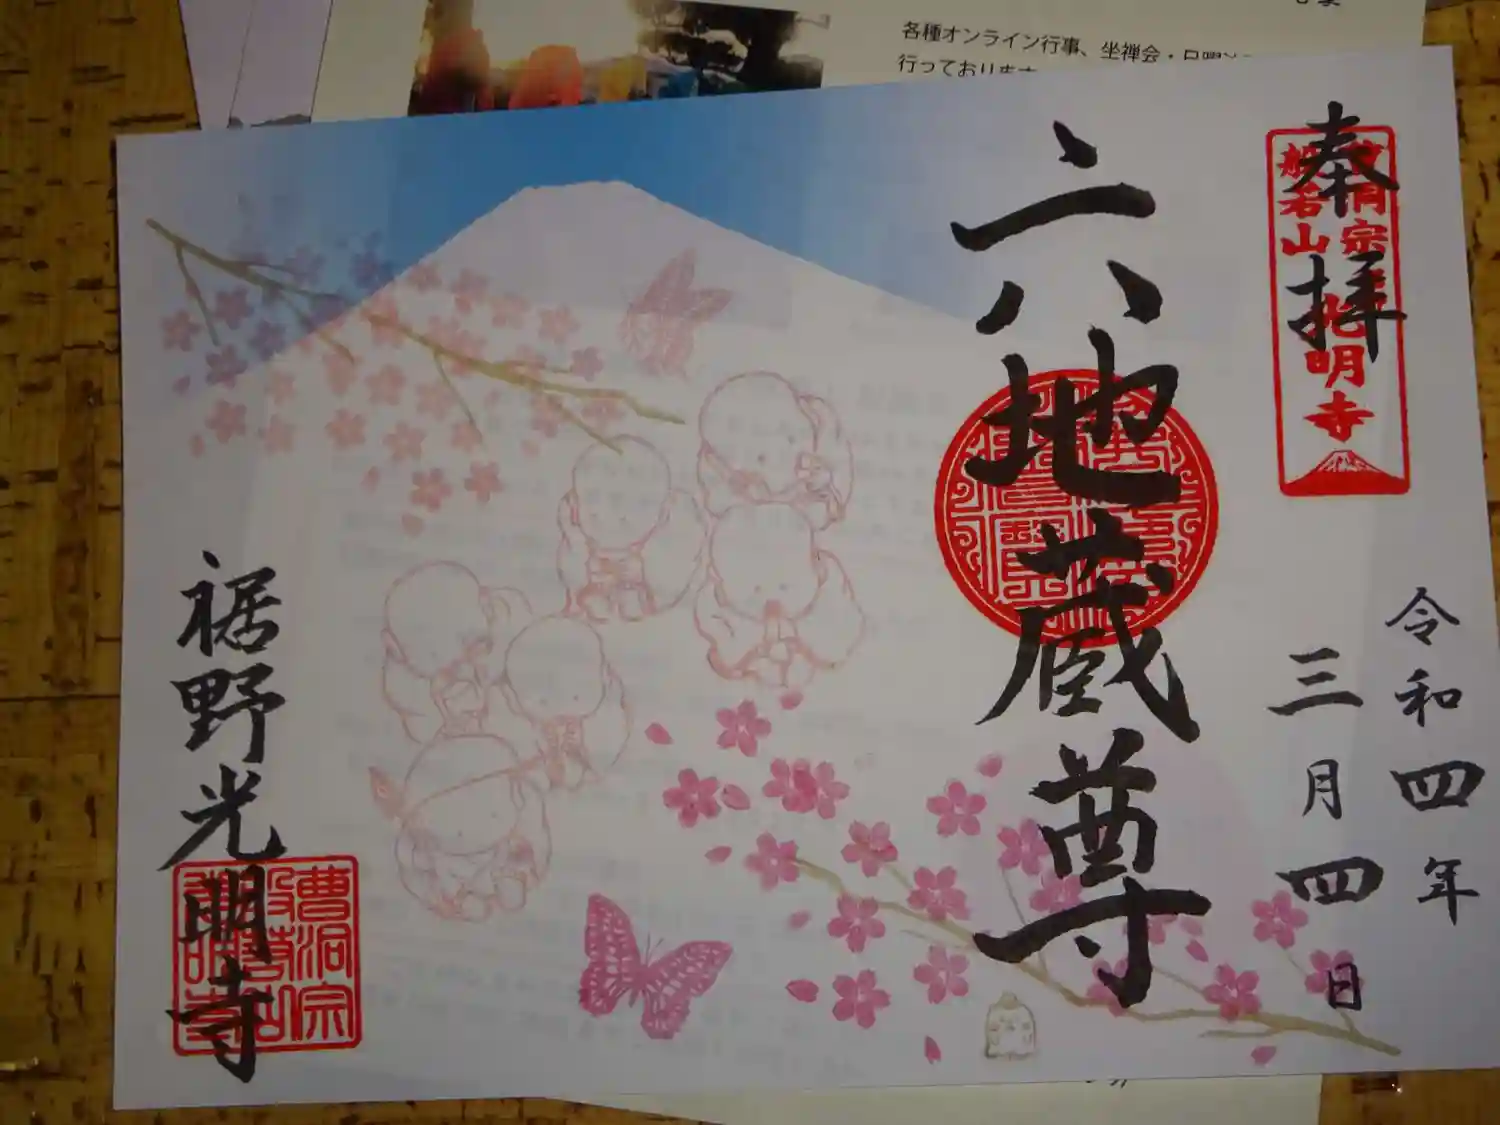 各種オンライン行事、坐禅会・日曜
行っております
奉拝
曹洞宗
般若山
光明寺
令和四年
三月四日
六地蔵尊
裾野光明寺
曹洞宗
般若山
光明寺